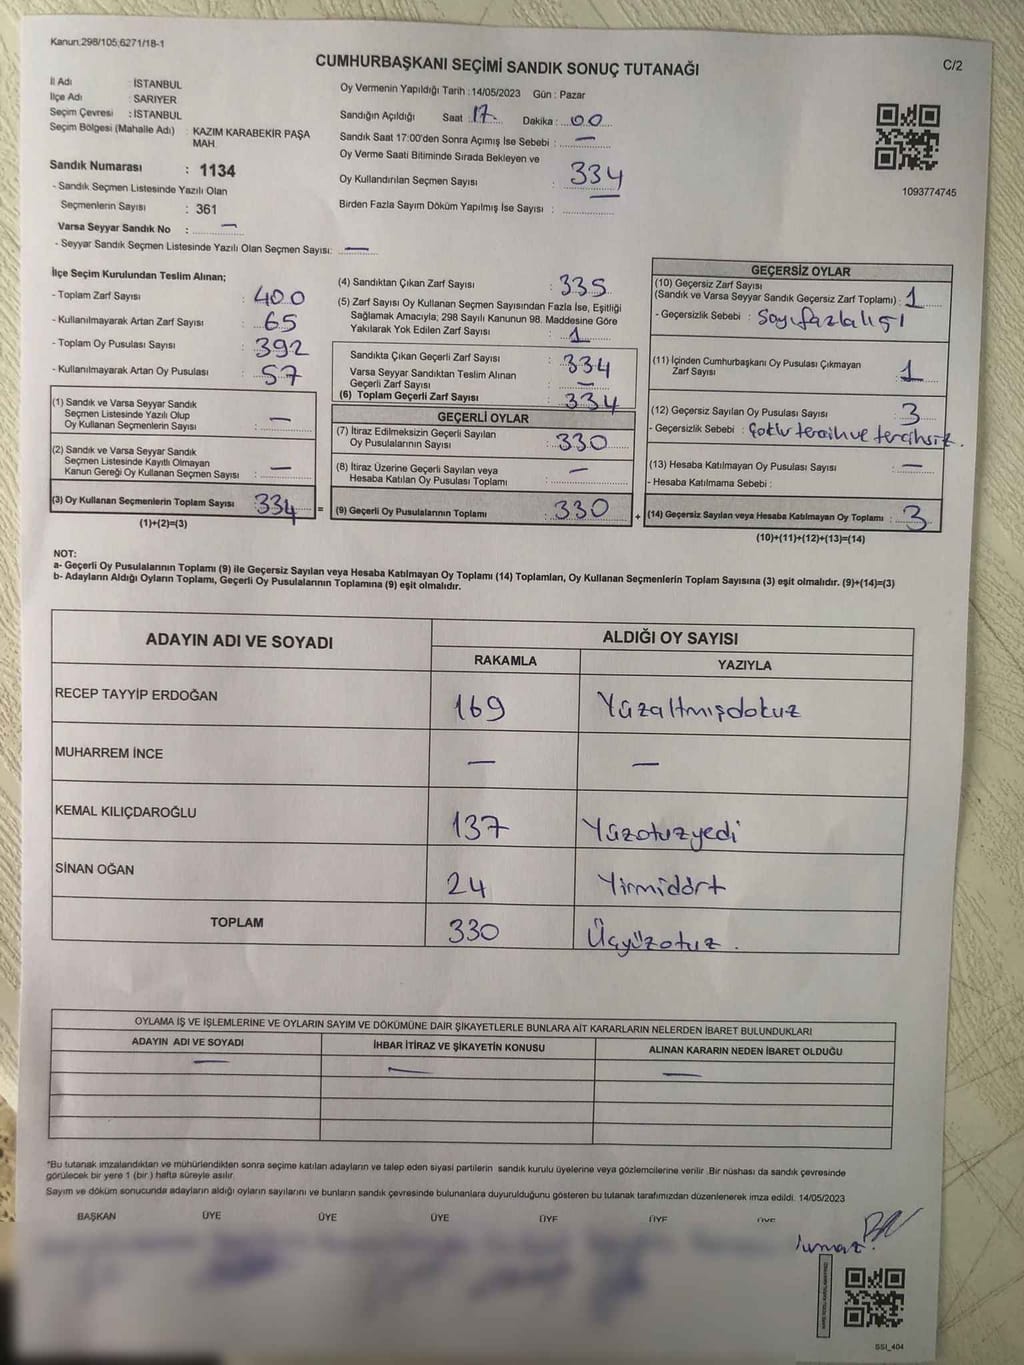 Kanun;298/105;6271/18-1
CUMHURBAŞKANI SEÇİMİ SANDIK SONUÇ TUTANAĞI
C/2
İl Adı : İSTANBUL
İlçe Adı : SARIYER
Seçim Çevresi : İSTANBUL
Seçim Bölgesi (Mahalle Adı) : KAZIM KARABEKİR PAŞA MAH.
Sandık Numarası : 1134
- Sandık Seçmen Listesinde Yazılı Olan
Seçmenlerin Sayısı : 361
Varsa Seyyar Sandık No : —
- Seyyar Sandık Seçmen Listesinde Yazılı Olan Seçmen Sayısı: —
Oy Vermenin Yapıldığı Tarih :14/05/2023 Gün : Pazar
Sandığın Açıldığı Saat : 17 Dakika : 00
Sandık Saat 17:00'den Sonra Açımış İse Sebebi : —
Oy Verme Saati Bitiminde Sırada Bekleyen ve
Oy Kullandırılan Seçmen Sayısı : 334
Birden Fazla Sayım Döküm Yapılmış İse Sayısı : —
1093774745
İlçe Seçim Kurulundan Teslim Alınan;
- Toplam Zarf Sayısı : 400
- Kullanılmayarak Artan Zarf Sayısı : 65
- Toplam Oy Pusulası Sayısı : 392
- Kullanılmayarak Artan Oy Pusulası : 57
(1) Sandık ve Varsa Seyyar Sandık
Seçmen Listesinde Yazılı Olup
Oy Kullanan Seçmenlerin Sayısı : —
(2) Sandık ve Varsa Seyyar Sandık
Seçmen Listesinde Kayıtlı Olmayan
Kanun Gereği Oy Kullanan Seçmen Sayısı : —
(3) Oy Kullanan Seçmenlerin Toplam Sayısı : 334 =
(1)+(2)=(3)
(4) Sandıktan Çıkan Zarf Sayısı : 335
(5) Zarf Sayısı Oy Kullanan Seçmen Sayısından Fazla İse, Eşitliği
Sağlamak Amacıyla; 298 Sayılı Kanunun 98. Maddesine Göre
Yakılarak Yok Edilen Zarf Sayısı : 1
Sandıkta Çıkan Geçerli Zarf Sayısı : 334
Varsa Seyyar Sandıktan Teslim Alınan
Geçerli Zarf Sayısı : —
(6) Toplam Geçerli Zarf Sayısı : 334
GEÇERLİ OYLAR
(7) İtiraz Edilmeksizin Geçerli Sayılan
Oy Pusulalarının Sayısı : 330
(8) İtiraz Üzerine Geçerli Sayılan veya
Hesaba Katılan Oy Pusulası Toplamı : —
(9) Geçerli Oy Pusulalarının Toplamı : 330 +
GEÇERSİZ OYLAR
(10) Geçersiz Zarf Sayısı
(Sandık ve Varsa Seyyar Sandık Geçersiz Zarf Toplamı) : 1
- Geçersizlik Sebebi : Sayıfazlalığı
(11) İçinden Cumhurbaşkanı Oy Pusulası Çıkmayan
Zarf Sayısı : 1
(12) Geçersiz Sayılan Oy Pusulası Sayısı : 3
- Geçersizlik Sebebi : Çoklu tercih ve tercihsiz.
(13) Hesaba Katılmayan Oy Pusulası Sayısı : —
- Hesaba Katılmama Sebebi :
(14) Geçersiz Sayılan veya Hesaba Katılmayan Oy Toplamı : 3
(10)+(11)+(12)+(13)=(14)
NOT:
a- Geçerli Oy Pusulalarının Toplamı (9) ile Geçersiz Sayılan veya Hesaba Katılmayan Oy Toplamı (14) Toplamları, Oy Kullanan Seçmenlerin Toplam Sayısına (3) eşit olmalıdır. (9)+(14)=(3)
b- Adayların Aldığı Oyların Toplamı, Geçerli Oy Pusulalarının Toplamına (9) eşit olmalıdır.
ADAYIN ADI VE SOYADI
ALDIĞI OY SAYISI
RAKAMLA YAZIYLA
RECEP TAYYİP ERDOĞAN 169 Yüzaltmışdokuz
MUHARREM İNCE — —
KEMAL KILIÇDAROĞLU 137 Yüzotuzyedi
SİNAN OĞAN 24 Yirmidört
TOPLAM 330 Üçyüzotuz.
OYLAMA İŞ VE İŞLEMLERİNE VE OYLARIN SAYIM VE DÖKÜMÜNE DAİR ŞİKAYETLERLE BUNLARA AİT KARARLARIN NELERDEN İBARET BULUNDUKLARI
ADAYIN ADI VE SOYADI İHBAR İTİRAZ VE ŞİKAYETİN KONUSU ALINAN KARARIN NEDEN İBARET OLDUĞU
— — —
*Bu tutanak imzalandıktan ve mühürlendikten sonra seçime katılan adayların ve talep eden siyasi partilerin sandık kurulu üyelerine veya gözlemcilerine verilir .Bir nüshası da sandık çevresinde
görülecek bir yere 1 (bir ) hafta süreyle asılır.
Sayım ve döküm sonucunda adayların aldığı oyların sayılarını ve bunların sandık çevresinde bulunanlara duyurulduğunu gösteren bu tutanak tarafımızdan düzenlenerek imza edildi. 14/05/2023
BAŞKAN ÜYE ÜYE ÜYE ÜYE ÜYE ÜYE
SSI_404